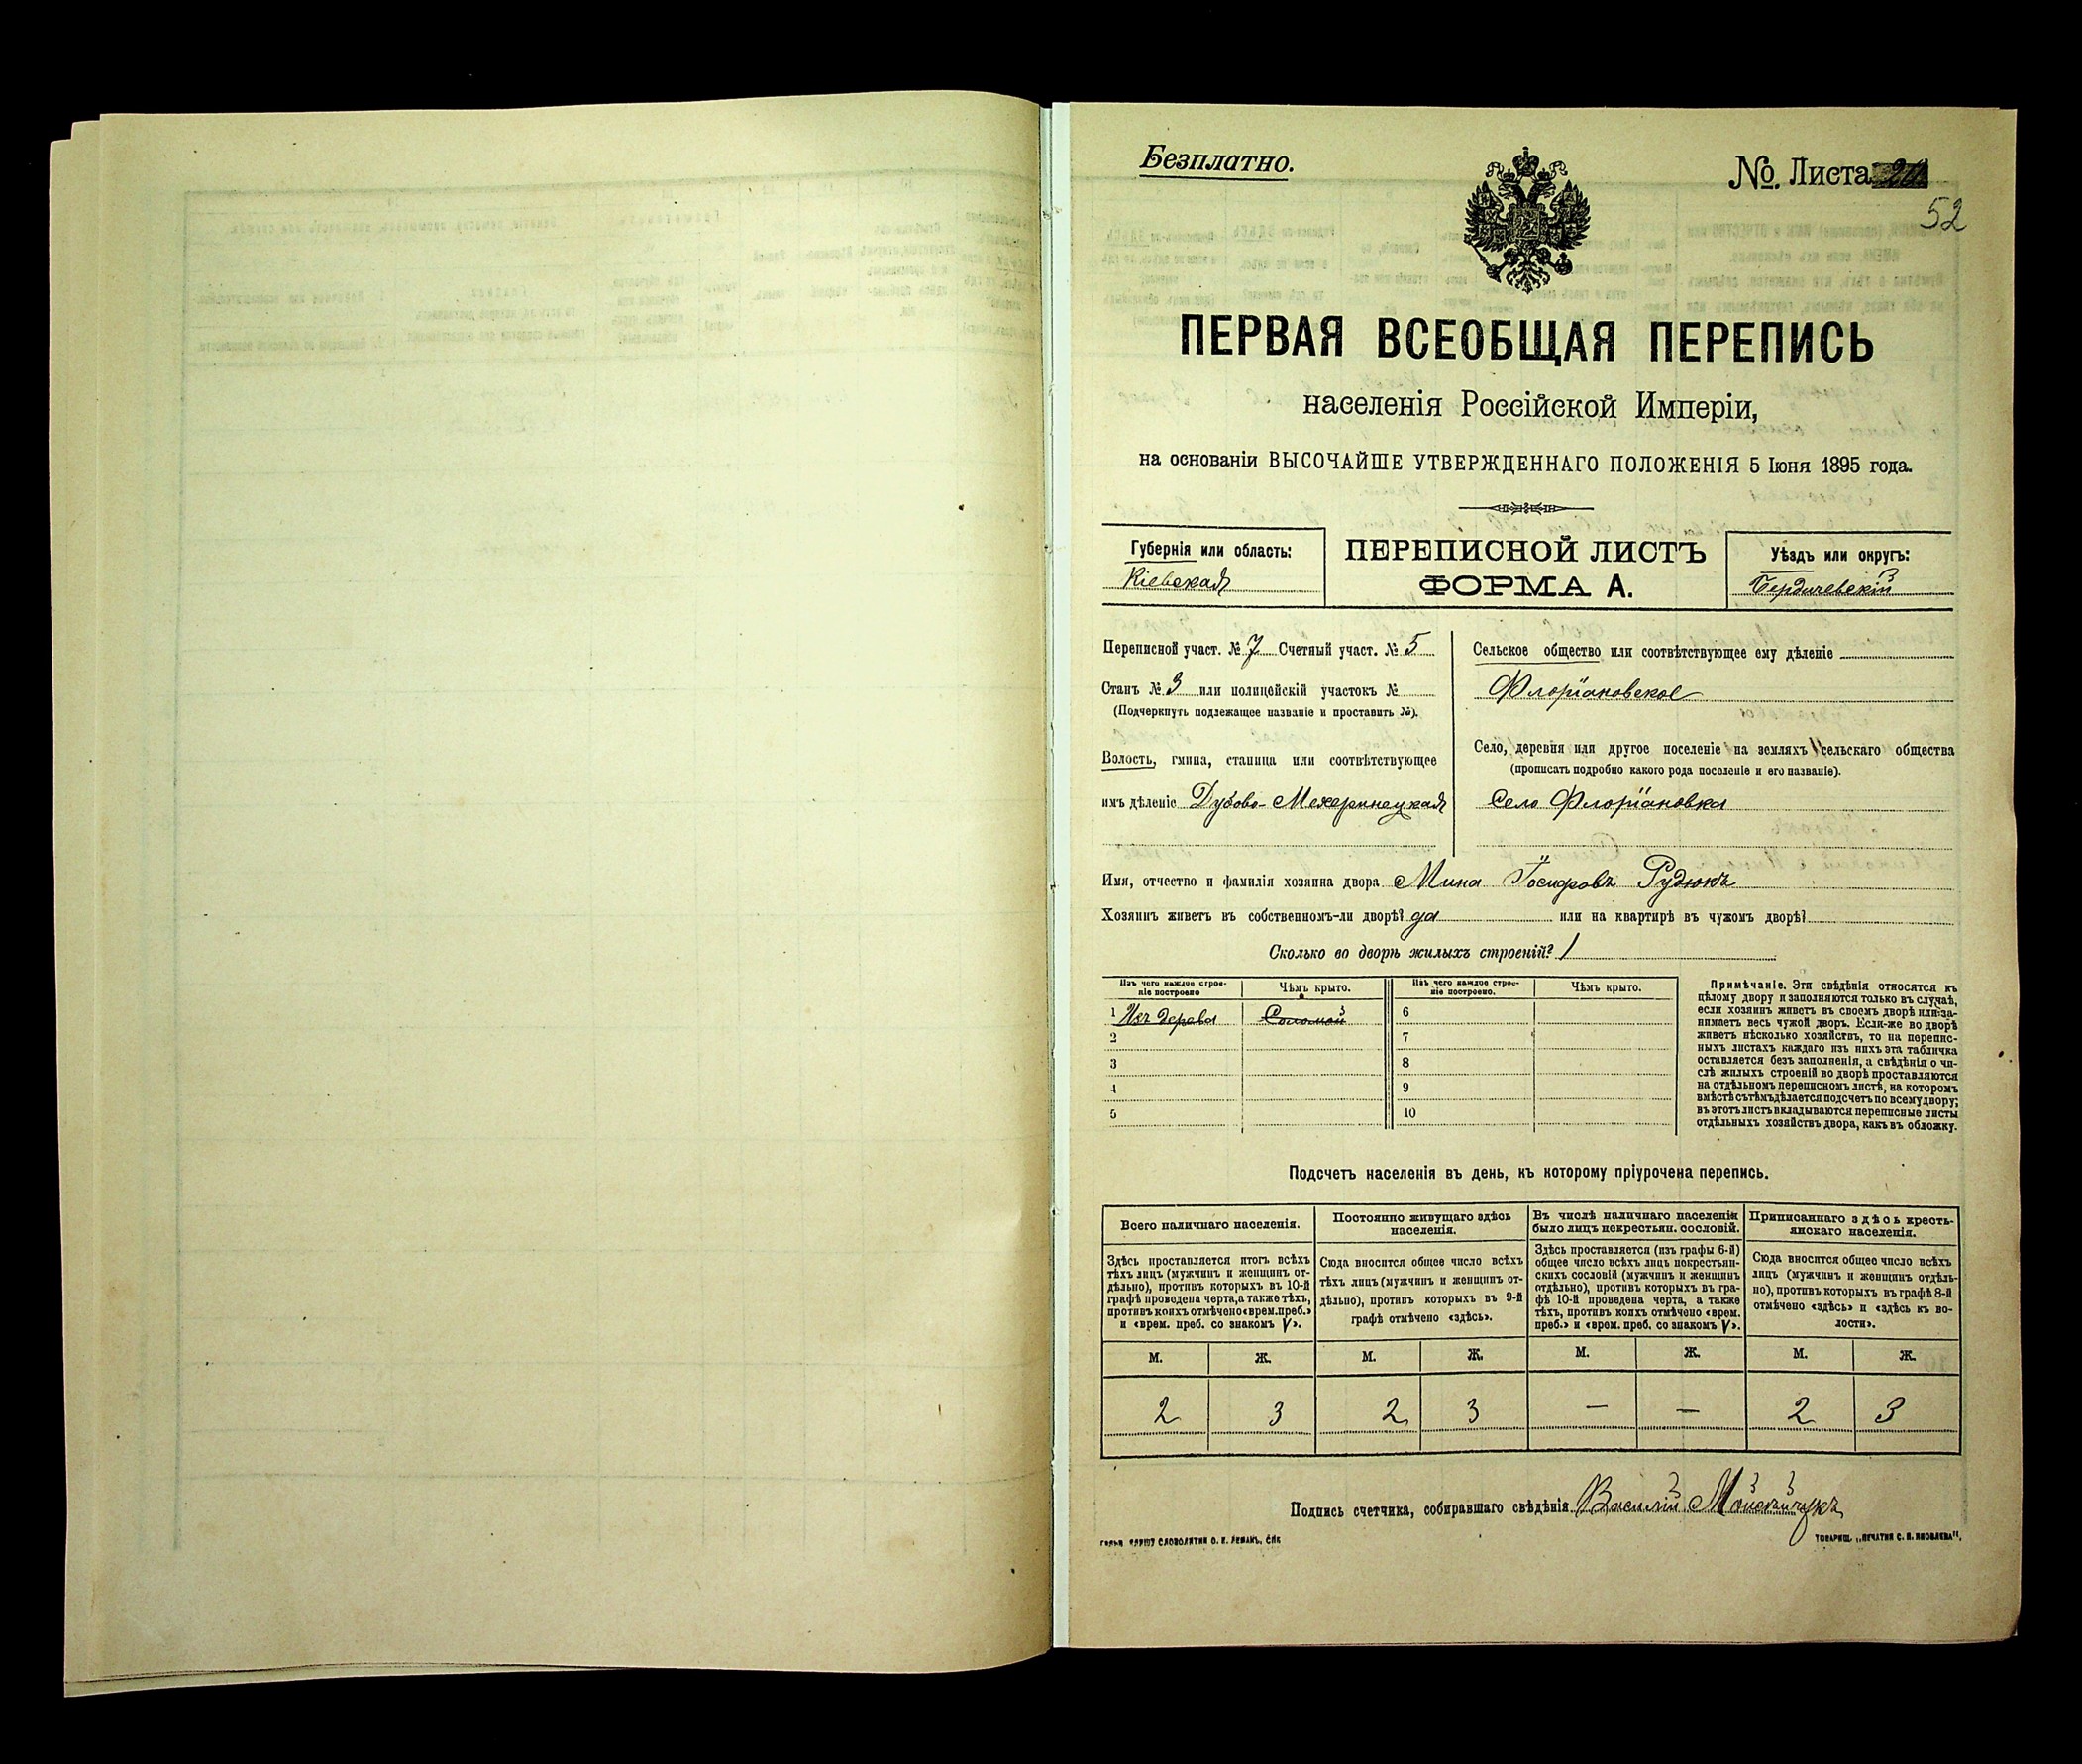 Безплатно.
№. Листа
52
ПЕРВАЯ ВСЕОБЩАЯ ПЕРЕПИСЬ
населенія Россійской Имперіи,
на основаніи ВЫСОЧАЙШЕ УТВЕРЖДЕННАГО ПОЛОЖЕНІЯ 5 Іюня 1895 года.
Губернія или область:
Кіевская
ПЕРЕПИСНОЙ ЛИСТЪ
ФОРМА А.
Уѣздъ или округъ:
Бердичевскій
Переписной участ. № 7 Счетный участ. № 5
Станъ № 3 или полицейскій участокъ №
(Подчеркнуть подлежащее названіе и проставить №).
Волость, гмина, станица или соотвѣтствующее
имъ дѣленіе Дубово-Мехеринецкая
Сельское общество или соотвѣтствующее ему дѣленіе
Флоріановское
Село, деревня или другое поселеніе на земляхъ сельскаго общества
(прописать подробно какого рода поселеніе и его названіе).
Село Флоріановка
Имя, отчество и фамилія хозяина двора Мина Іосифовъ Рудюкъ
Хозяинъ живетъ въ собственномъ-ли дворѣ? да или на квартирѣ въ чужомъ дворѣ?
Сколько во дворѣ жилыхъ строеній? 1
Изъ чего каждое строе-
ніе построено
Чѣмъ крыто.
Изъ чего каждое строе-
ніе построено.
Чѣмъ крыто.
1 Изъ дерева Соломой 6
2 7
3 8
4 9
5 10
Примѣчаніе. Эти свѣдѣнія относятся къ
цѣлому двору и заполняются только въ случаѣ,
если хозяинъ живетъ въ своемъ дворѣ или за-
нимаетъ весь чужой дворъ. Если-же во дворѣ
живетъ нѣсколько хозяйствъ, то на перепис-
ныхъ листахъ каждаго изъ нихъ эта табличка
оставляется безъ заполненія, а свѣдѣнія о чи-
слѣ жилыхъ строеній во дворѣ проставляются
на отдѣльномъ переписномъ листѣ, на которомъ
вмѣстѣ съ тѣмъ дѣлается подсчетъ по всему двору;
въ этотъ листъ вкладываются переписные листы
отдѣльныхъ хозяйствъ двора, какъ въ обложку.
Подсчетъ населенія въ день, къ которому пріурочена перепись.
Всего наличнаго населенія.
Здѣсь проставляется итогъ всѣхъ
тѣхъ лицъ (мужчинъ и женщинъ от-
дѣльно), противъ которыхъ въ 10-й
графѣ проведена черта, а также тѣхъ,
противъ коихъ отмѣчено «врем. преб.»
и «врем. преб. со знакомъ V».
Постоянно живущаго здѣсь
населенія.
Сюда вносится общее число всѣхъ
тѣхъ лицъ (мужчинъ и женщинъ от-
дѣльно), противъ которыхъ въ 9-й
графѣ отмѣчено «здѣсь».
Въ числѣ наличнаго населенія
было лицъ некрестьян. сословій.
Здѣсь проставляется (изъ графы 6-й)
общее число всѣхъ лицъ некрестьян-
скихъ сословій (мужчинъ и женщинъ
отдѣльно), противъ которыхъ въ гра-
фѣ 10-й проведена черта, а также
тѣхъ, противъ коихъ отмѣчено «врем.
преб.» и «врем. преб. со знакомъ V».
Приписаннаго здѣсь кресть-
янскаго населенія.
Сюда вносится общее число всѣхъ
лицъ (мужчинъ и женщинъ отдѣль-
но), противъ которыхъ въ графѣ 8-й
отмѣчено «здѣсь» и «здѣсь къ во-
лости».
М. Ж. М. Ж. М. Ж. М. Ж.
2 3 2 3 — — 2 3
Подпись счетчика, собиравшаго свѣдѣнія Василій
СЛОВОЛИТНИ О. И. ЛЕМАНЪ, СПБ
ТОВАРИЩ. „ПЕЧАТНЯ С. П. ЯКОВЛЕВА".